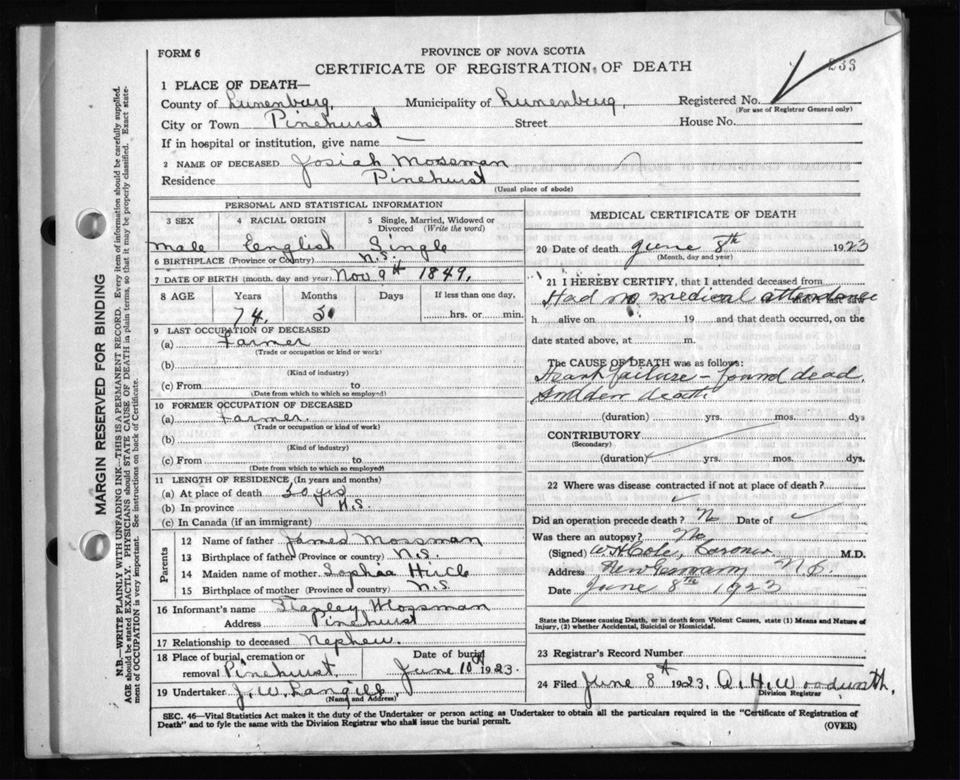 FORM 6
PROVINCE OF NOVA SCOTIA
233
CERTIFICATE OF REGISTRATION OF DEATH
1 PLACE OF DEATH—
County of Lunenburg, Municipality of Lunenburg, Registered No.
(For use of Registrar General only)
City or Town Pinehurst Street House No.
If in hospital or institution, give name —
2 NAME OF DECEASED Josiah Mossman
Residence Pinehurst
(Usual place of abode)
PERSONAL AND STATISTICAL INFORMATION
3 SEX 4 RACIAL ORIGIN 5 Single, Married, Widowed or Divorced (Write the word)
Male English Single
6 BIRTHPLACE (Province or Country) N.S.
7 DATE OF BIRTH (month, day and year) Nov 9th 1849,
8 AGE Years Months Days If less than one day,
74 hrs. or min.
9 LAST OCCUPATION OF DECEASED
(a) Farmer
(Trade or occupation or kind or work)
(b)
(Kind of industry)
(c) From to
(Date from which to which so employed)
10 FORMER OCCUPATION OF DECEASED
(a) Farmer.
(Trade or occupation or kind of work)
(b)
(Kind of industry)
(c) From to
(Date from which to which so employed)
11 LENGTH OF RESIDENCE (In years and months)
(a) At place of death yrs
(b) In province N.S.
(c) In Canada (if an immigrant)
Parents
12 Name of father James Mossman
13 Birthplace of father (Province or country) N.S.
14 Maiden name of mother Sophia
15 Birthplace of mother (Province or country) N.S.
16 Informant's name Stapley Mossman
Address Pinehurst
17 Relationship to deceased Nephew.
18 Place of burial, cremation or removal Pinehurst. Date of burial June 10th 1923.
19 Undertaker J. W. Langille
(Name and Address)
MEDICAL CERTIFICATE OF DEATH
20 Date of death June 8th 1923
(Month, day and year)
21 I HEREBY CERTIFY, that I attended deceased from
Had no medical attendance
h alive on 19 and that death occurred, on the
date stated above, at m.
The CAUSE OF DEATH was as follows:
Heart failure – found dead,
Sudden death
(duration) yrs. mos. dys
CONTRIBUTORY
(Secondary)
(duration) yrs. mos. dys.
22 Where was disease contracted if not at place of death?
Did an operation precede death? No Date of
Was there an autopsy? No
(Signed) W. H. Cole, Coroner M.D.
Address New Germany N.S.
Date June 8th 1923
State the Disease causing Death, or in death from Violent Causes, state (1) Means and Nature of
Injury, (2) whether Accidental, Suicidal or Homicidal.
23 Registrar's Record Number
24 Filed June 8th 1923, Woodworth,
Division Registrar
SEC. 46—Vital Statistics Act makes it the duty of the Undertaker or person acting as Undertaker to obtain all the particulars required in the "Certificate of Registration of
Death" and to fyle the same with the Division Registrar who shall issue the burial permit.
(OVER)
MARGIN RESERVED FOR BINDING
N.B.—WRITE PLAINLY WITH UNFADING INK—THIS IS A PERMANENT RECORD. Every item of information should be carefully supplied.
AGE should be stated EXACTLY. PHYSICIANS should STATE CAUSE OF DEATH in plain terms, so that it may be properly classified. Exact state-
ment of OCCUPATION is very important. See instructions on back of Certificate.